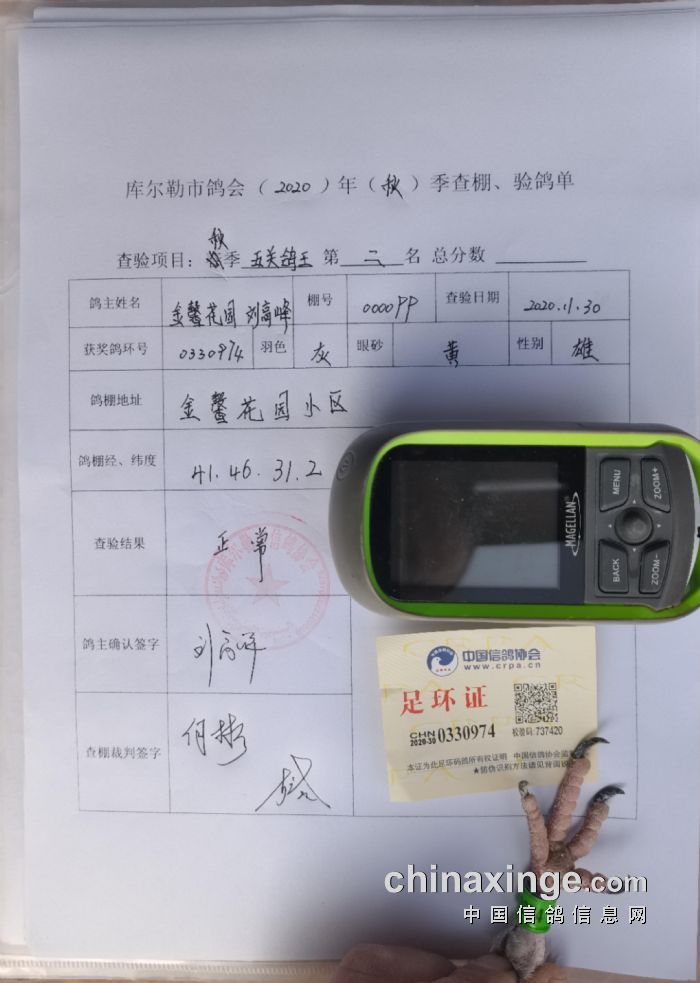 库尔勒市鸽会（2020）年（秋）季查棚、验鸽单
查验项目：秋季 五关鸽王 第 二 名 总分数
鸽主姓名 金鳌花园 刘高峰 棚号 0000PP 查验日期 2020.11.30
获奖鸽环号 0330974 羽色 灰 眼砂 黄 性别 雄
鸽棚地址 金鳌花园小区
鸽棚经、纬度 41.46.31.2
查验结果 正常
鸽主确认签字 刘高峰
查棚裁判签字 何彬
MAGELLAN
MENU
ZOOM+
BACK
ZOOM-
中国信鸽协会
www.crpa.cn
足环证
CHN
2020-30 0330974
校验码: 737420
本证为此足环码鸽所有权证明 中国信鸽协会监
★防伪识别方法请见背面
chinaxinge.com
中国信鸽信息网